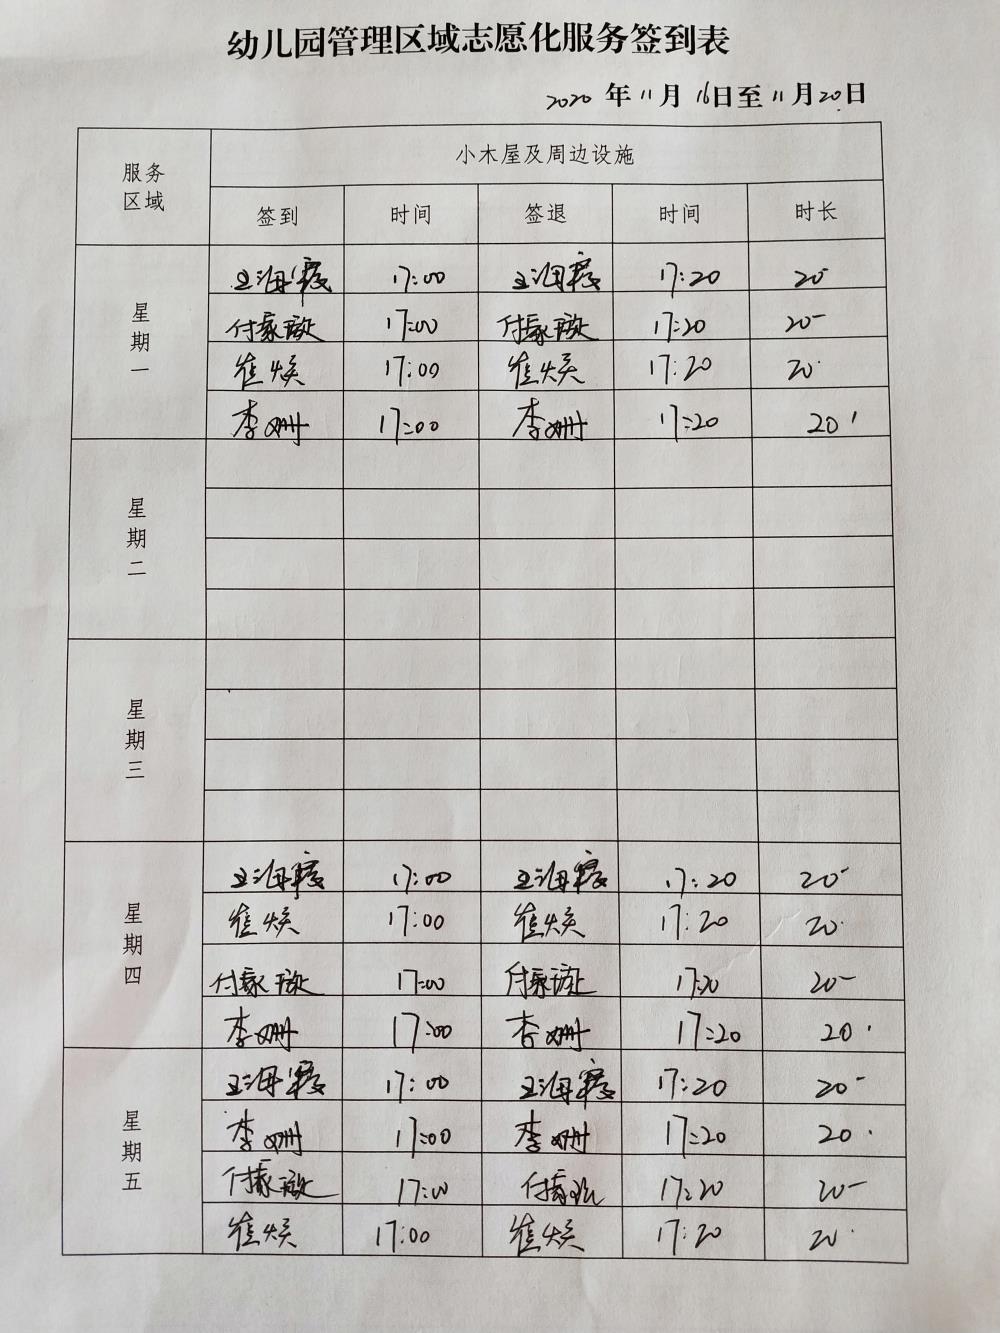 幼儿园管理区域志愿化服务签到表
2020 年 11 月 16日至 11 月 20日
服务区域 小木屋及周边设施
签到 时间 签退 时间 时长
星期一 王海霞 17:00 王海霞 17:20 20
17:00 17:20 20
崔焕 17:00 崔焕 17:20 20
李姗 17:00 李姗 17:20 20'
星期二
星期三
星期四 王海霞 17:00 王海霞 17:20 20
崔焕 17:00 崔焕 17:20 20
17:00 17:20 20
李姗 17:00 李姗 17:20 20
星期五 王海霞 17:00 王海霞 17:20 20
李姗 17:00 李姗 17:20 20
17:00 17:20 20
崔焕 17:00 崔焕 17:20 20